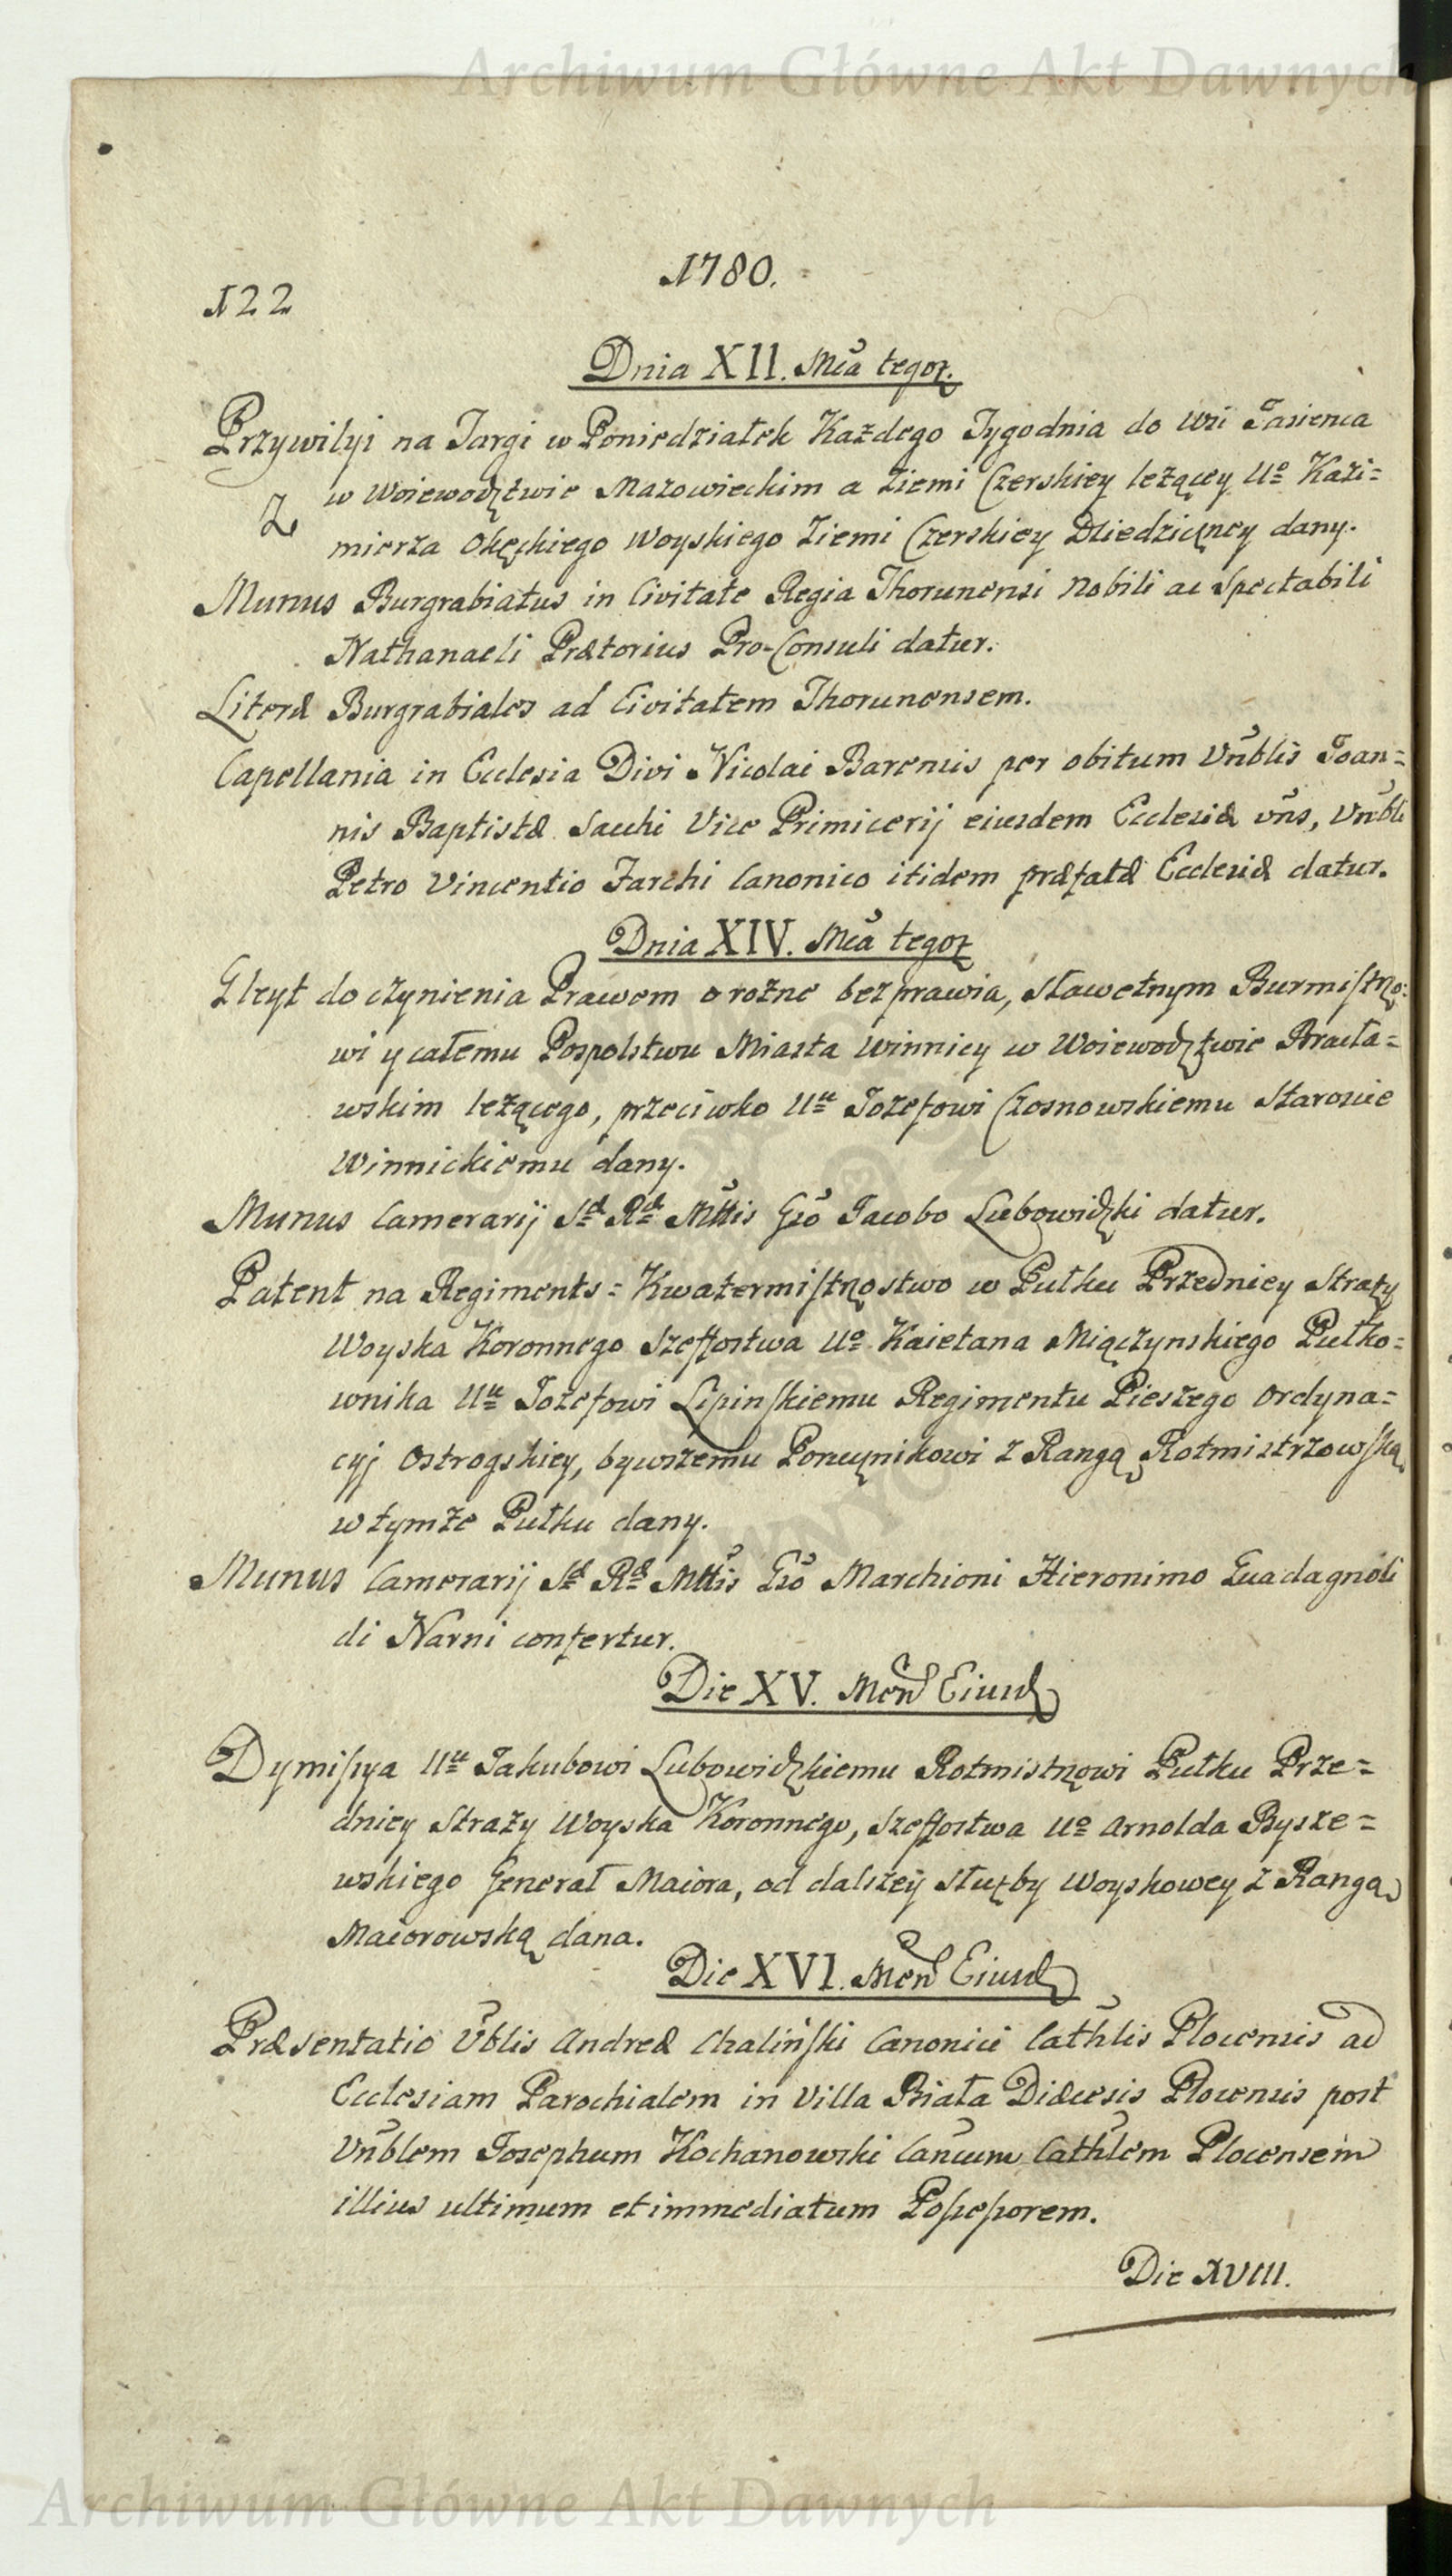 Archiwum Główne Akt Dawnych
1780.
122
Dnia XII. Mca tegoż.
Przywilyi na Targi w Poniedziałek Każdego Tygodnia do Wsi Jasienca
w Woiewodztwie Mazowieckim a Ziemi Czerskiey leżącey Uo Kazi=
mierza Okęckiego Woyskiego Ziemi Czerskiey Dziedziczney dany.
Munus Burgrabiatus in Civitate Regia Thorunensi Nobili ac Spectabili
Nathanaeli Prætorius Pro-Consuli datur.
Literæ Burgrabiales ad Civitatem Thorunensem.
Capellania in Ecclesia Divi Nicolai Barensis per obitum Vnblis Joan=
nis Baptistæ Sacchi Vice Primicerij eiusdem Ecclesiæ vns, Vnbli
Petro Vincentio Farchi Canonico itidem præfatæ Ecclesiæ datur.
Dnia XIV. Mca tegoż
Gleyt do czynienia Prawem o rożne bezprawia, Sławetnym Burmistrzo=
wi y całemu Pospolstwu Miasta Winnicy w Woiewodztwie Bracła=
wskim leżącego, przeciwko Uu Jozefowi Czosnowskiemu Staroscie
Winnickiemu dany.
Munus Camerarij Sæ Ræ Mttis Gso Jacobo Lubowidzki datur.
Patent na Regiments=Kwatermistrzostwo w Pułku Przedniey Straży
Woyska Koronnego Szeffostwa Uo Kaietana Miączynskiego Pułko=
wnika Uu Jozefowi Lipinskiemu Regimentu Pieszego Ordyna=
cyj Ostrogskiey, bywszemu Porucznikowi z Rangą Rotmistrzowską
w tymże Pułku dany.
Munus Camerarij Sæ Ræ Mttis Gso Marchioni Hieronimo Guadagnoli
di Narni confertur.
Die XV. Men Eiusd
Dymissya Uu Jakubowi Lubowidzkiemu Rotmistrzowi Pułku Prze=
dniey Straży Woyska Koronnego, Szeffostwa Uo Arnolda Bysze=
wskiego Generał Maiora, od dalszey służby Woyskowey z Rangą
Maiorowską dana.
Die XVI. Men Eiusd
Præsentatio Vblis Andreæ Chalinski Canonici Cathlis Plocensis ad
Ecclesiam Parochialem in Villa Biała Diæcesis Plocensis post
Vnblem Josephum Kochanowski Cancum Cathlem Plocensem
illius ultimum et immediatum Possessorem.
Die XVIII.
Archiwum Główne Akt Dawnych